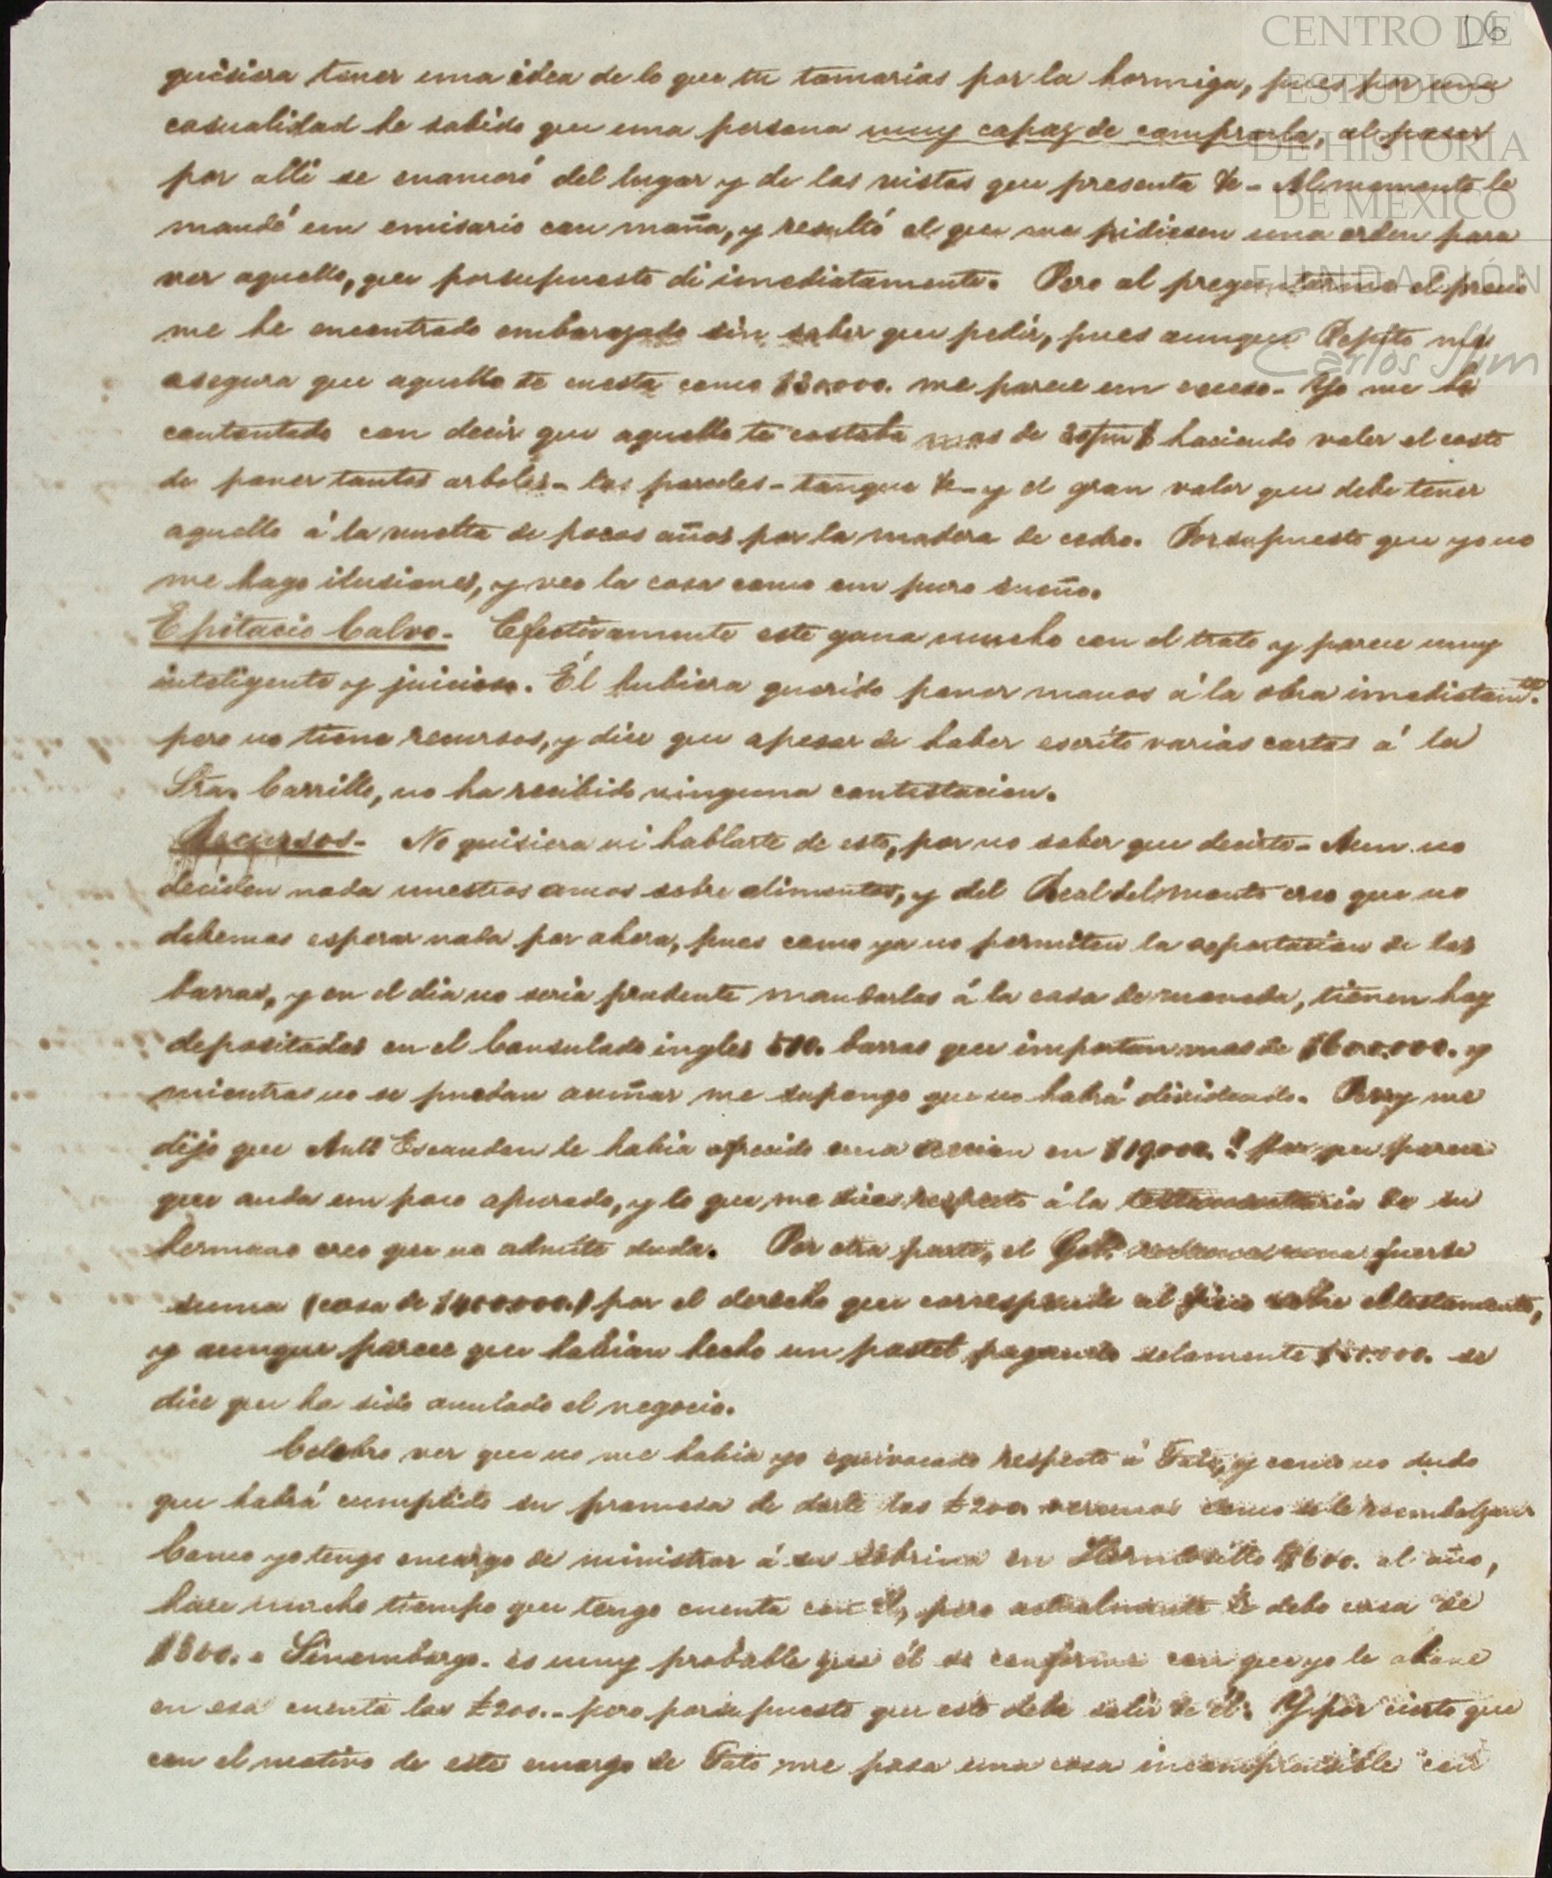 16
CENTRO DE
ESTUDIOS
DE HISTORIA
DE MÉXICO
FUNDACIÓN
Carlos Slim
quisiera tener una idea de lo que tu tomarias por la hormiga, pues por una
casualidad he sabido que una persona muy capaz de comprarla, al pasar
por alli se enamoró del lugar y de las vistas que presenta &- Al momento le
mandé un emisario con maña, y resultó el que me pidiesen una orden para
ver aquello, que porsupuesto di imediatamente. Pero al preguntarme el precio
me he encontrado embarazado sin saber que pedir, pues aunque Pepito me
asegura que aquello te cuesta como $30.000. me parece un exceso- Yo me he
contentado con decir que aquello te costaba mas de haciendo valer el costo
de poner tantos arboles- las paredes- tanque &- y el gran valor que debe tener
aquello á la vuelta de pocos años por la madera de cedro. Porsupuesto que yo no
me hago ilusiones, y veo la cosa como un puro sueño.
Epitacio Calvo- Efectivamente este gana mucho con el trato y parece muy
inteligente y juicioso. Él hubiera querido poner manos á la obra imediatamte.
pero no tiene recursos, y dice que apesar de haber escrito varias cartas á la
Sra. Carrillo, no ha recibido ninguna contestacion.
Recursos- No quisiera ni hablarte de esto, por no saber que decirte- Aun no
deciden nada nuestros amos sobre alimentos, y del Real del monte creo que no
debemos esperar nada por ahora, pues como ya no permiten la esportacion de las
barras, y en el dia no seria prudente mandarlas á la casa de moneda, tienen hoy
depositadas en el Consulado ingles 500. barras que importan mas de $600.000. y
mientras no se puedan acuñar me supongo que no habrá dividendo. Perry me
dijo que Antº Escandon le habia ofrecido una accion en $19.000.! Por que parece
que anda un poco apurado, y lo que me dices respecto á la testamentaria de su
hermano creo que no admite duda. Por otra parte, el Gobº. reclama una fuerte
suma (cosa de $400.000.) por el derecho que corresponde al fisco sobre el testamento,
y aunque parece que habian hecho un pastel pagando solamente se
dice que ha sido anulado el negocio.
Celebro ver que no me habia yo equivocado respecto á Tato, y como no dudo
que habrá cumplido su promesa de darte las £200. veremos como se le reembolzan
Como yo tengo encargo de ministrar á su sobrina en Hermosillo $600. al año,
hace mucho tiempo que tengo cuenta con él, pero actualmente le debo cosa de
$300.- Sinembargo- es muy probable que él se conforme con que yo le abone
en esa cuenta las £200.- pero porsupuesto que esto debe salir de él. Y por cierto que
con el motivo de este encargo de Tato me pasa una cosa incomprensible con